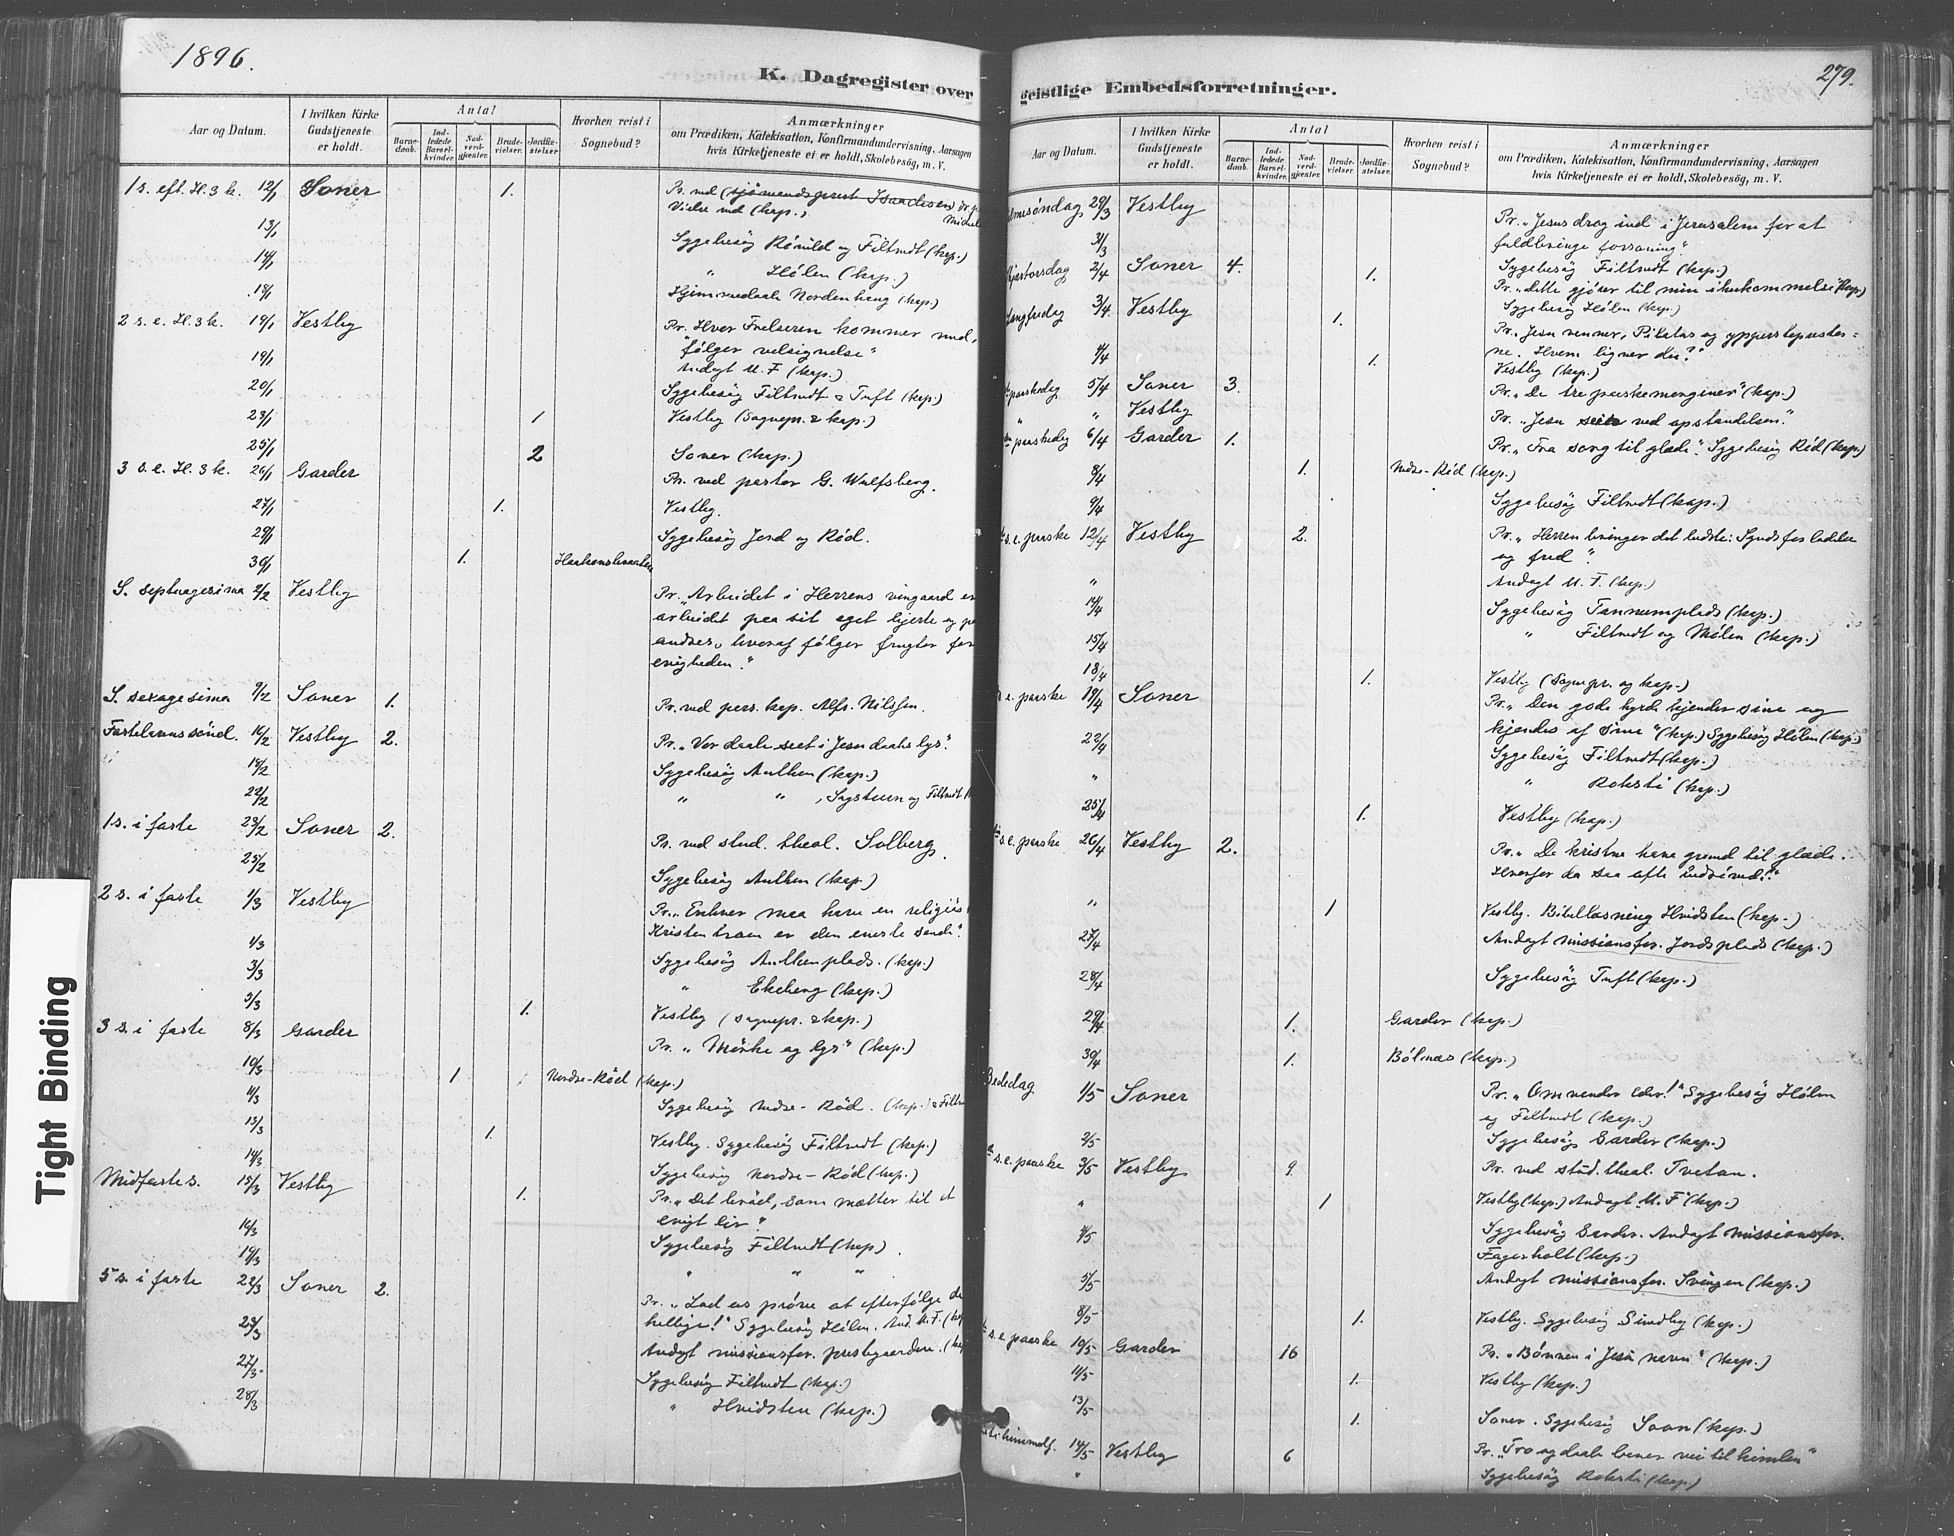 1896.
K. Dagregister over
Aar og Datum.
I hvilken Kirke Gudstjeneste er holdt.
Antal
Barnedaab.
Indledede Barselkvinder.
Nadverdgjæster.
Brudevielser.
Jordfæstelser
Hvorhen reist i Sognebud?
Anmærkninger
om Prædiken, Katekisation, Konfirmandundervisning, Aarsagen
hvis Kirketjeneste ei er holdt, Skolebesøg, m. V.
1 s. eft. H. 3 k. 12/1 Soner 1. Pr. ved (sjømandsprest Isaachsen)
Vielse ved (kap.)
13/1 Sygebesøg Rønild og Filtvedt (kap.)
14/1 " Hølen (kap.)
18/1 Hjemmedaab Nordenhaug (kap.)
2 s. e. H. 3 k. 19/1 Vestby Pr. Hvor Frelseren kommer med,
følger velsignelse"
19/1 Andagt U. F (kap.)
20/1 Sygebesøg Filtvedt & Tuft (kap.)
23/1 1 Vestby (Sognepr. & kap.)
25/1 2 Soner (kap.)
3 s. e. H. 3 k. 26/1 Garder Pr. ved pastor G. Wulfsberg.
27/1 1. Vestby.
29/1 Sygebesøg Jord og Rød.
30/1 1.
S. septuagesima 2/2 Vestby Pr. "Arbeidet i Herrens vingaard er
arbeidet paa sit eget hjerte og paa
andres, hvoraf følger frugter for
evigheden."
S. sexagesima 9/2 Soner 1. Pr. ved pers. kap. Alfr. Nilssen.
Fastelavenssønd. 16/2 Vestby 2. Pr. "Vor daab set i Jesu daabs lys".
18/2 Sygebesøg Aulhen (kap.)
22/2 " " , og Filtvedt
1 s. i faste 23/2 Soner 2. Pr. ved stud. theol. Solberg.
25/2 Sygebesøg Aulhen (kap.)
2 s. i faste 1/3 Vestby Pr. "Enhver maa have en religiøs
Kristentroen er den eneste sande".
1/3 Sygebesøg Aulhenplads. (kap.)
3/3 " Ekeberg (kap.)
5/3 1. Vestby (Sognepr. & kap.)
3 s. i faste 8/3 Garder Pr. "Mørke og lys" (kap.)
10/3 1 Nordre-Rød (kap.)
11/3 Sygebesøg Nordre-Rød. (kap.)
13/3 1. Vestby. Sygebesøg Filtvedt (kap.)
14/3 Sygebesøg Nordre-Rød (kap.)
Midfastes. 15/3 Vestby 1. Pr. "Det brød, som mætter til et
evigt liv."
16/3 Sygebesøg Filtvedt (kap.)
19/3 " " "
5 s. i faste 22/3 Soner 2. Pr. "Lad os prøve at efterfølge de
hellige!" Sygebesøg Hølen. And. U. F.
23/3 Andagt missionsfor. prestegaarden.
27/3 Sygebesøg Filtvedt (kap.)
28/3 " Hvidsten (kap.)
279.
geistlige Embedsforretninger.
Aar og Datum.
I hvilken Kirke Gudstjeneste er holdt.
Antal
Barnedaab.
Indledede Barselkvinder.
Nadverdgjæster.
Brudevielser.
Jordfæstelser.
Hvorhen reist i Sognebud?
Anmærkninger
om Prædiken, Katekisation, Konfirmandundervisning, Aarsagen
hvis Kirketjeneste ei er holdt, Skolebesøg, m. V.
Palmesøndag 29/3 Vestby Pr. "Jesus drog ind i Jerusalem for at
fuldbringe forsoning"
31/3 Sygebesøg Filtvedt (kap.)
Skjærtorsdag 2/4 Soner 4. 1. Pr. "Dette gjører til min ihukommelse" (kap.)
Sygebesøg Hølen (kap.)
Langfredag 3/4. Vestby 1. Pr. "Jesu venner, Pilatus og ypperstepresterne.
Hvem ligner du?"
4/4 1. Vestby (kap.)
paaskedag 5/4 Soner 3. Pr. "De tre paaskemorgener" (kap.)
" Vestby Pr. "Jesu seir ved opstandelsen".
paaskedag 6/4 Garder 1. Pr. "Fra sorg til glæde". Sygebesøg Rød (kap.)
8/4 1. Nedre-Rød (kap.)
9/4 Sygebesøg Filtvedt (kap.)
s. e. paaske 12/4 Vestby 2. Pr. "Herren bringer det bedste: Syndsforladelse
og fred".
" Andagt U. F. (kap.)
14/4 Sygebesøg Tannumplads (kap.)
15/4 " Filtvedt og Mølen (kap.)
18/4 1. Vestby (Sognepr. og kap.)
s. e. paaske 19/4 Soner Pr. "Den gode hyrde kjender sine og
kjendes af sine" (kap.) Sygebesøg Hølen (kap.)
22/4 Sygebesøg Filtvedt (kap.)
" " Roksti (kap.)
25/4 1. Vestby (kap.)
s. e. paaske 26/4 Vestby 2. Pr. "De kristne have grund til glæde.
Hvorfor da saa ofte bedrøved?"
" 1 Vestby. Bibellæsning Hvidsten (kap.)
27/4 Andagt missionsfor. Jordsplads (kap.)
28/4 Sygebesøg Tuft (kap.)
29/4 1. Garder (kap.)
30/4 1. Bølnæs (kap.)
Bededag 1/5 Soner Pr. "Omvender eder!" Sygebesøg Hølen
og Filtvedt (kap.)
2/5 Sygebesøg Garder (kap.)
s. e. paaske 3/5 Vestby 9. Pr. ved stud. theol. Tvetan.
" 1 Vestby (kap.) Andagt U. F (kap.)
4/5 Sygebesøg Garder. Andagt missionsfor.
Fagerholt (kap.)
5/5 Andagt missionsfor. Svingen (kap.)
8/5 1. Vestby. Sygebesøg Sundby (kap.)
s. e. paaske 10/5 Garder 16 Pr. "Bønnen i Jesu navn" (kap.)
11/5 1. Vestby (kap.)
13/5 1. Soner. Sygebesøg Soon (kap.)
Kristi himmelf. 14/5 Vestby 6 Pr. "Tro og daab baner vei til himlen"
" Sygebesøg Roksti (kap.)
Tight Binding